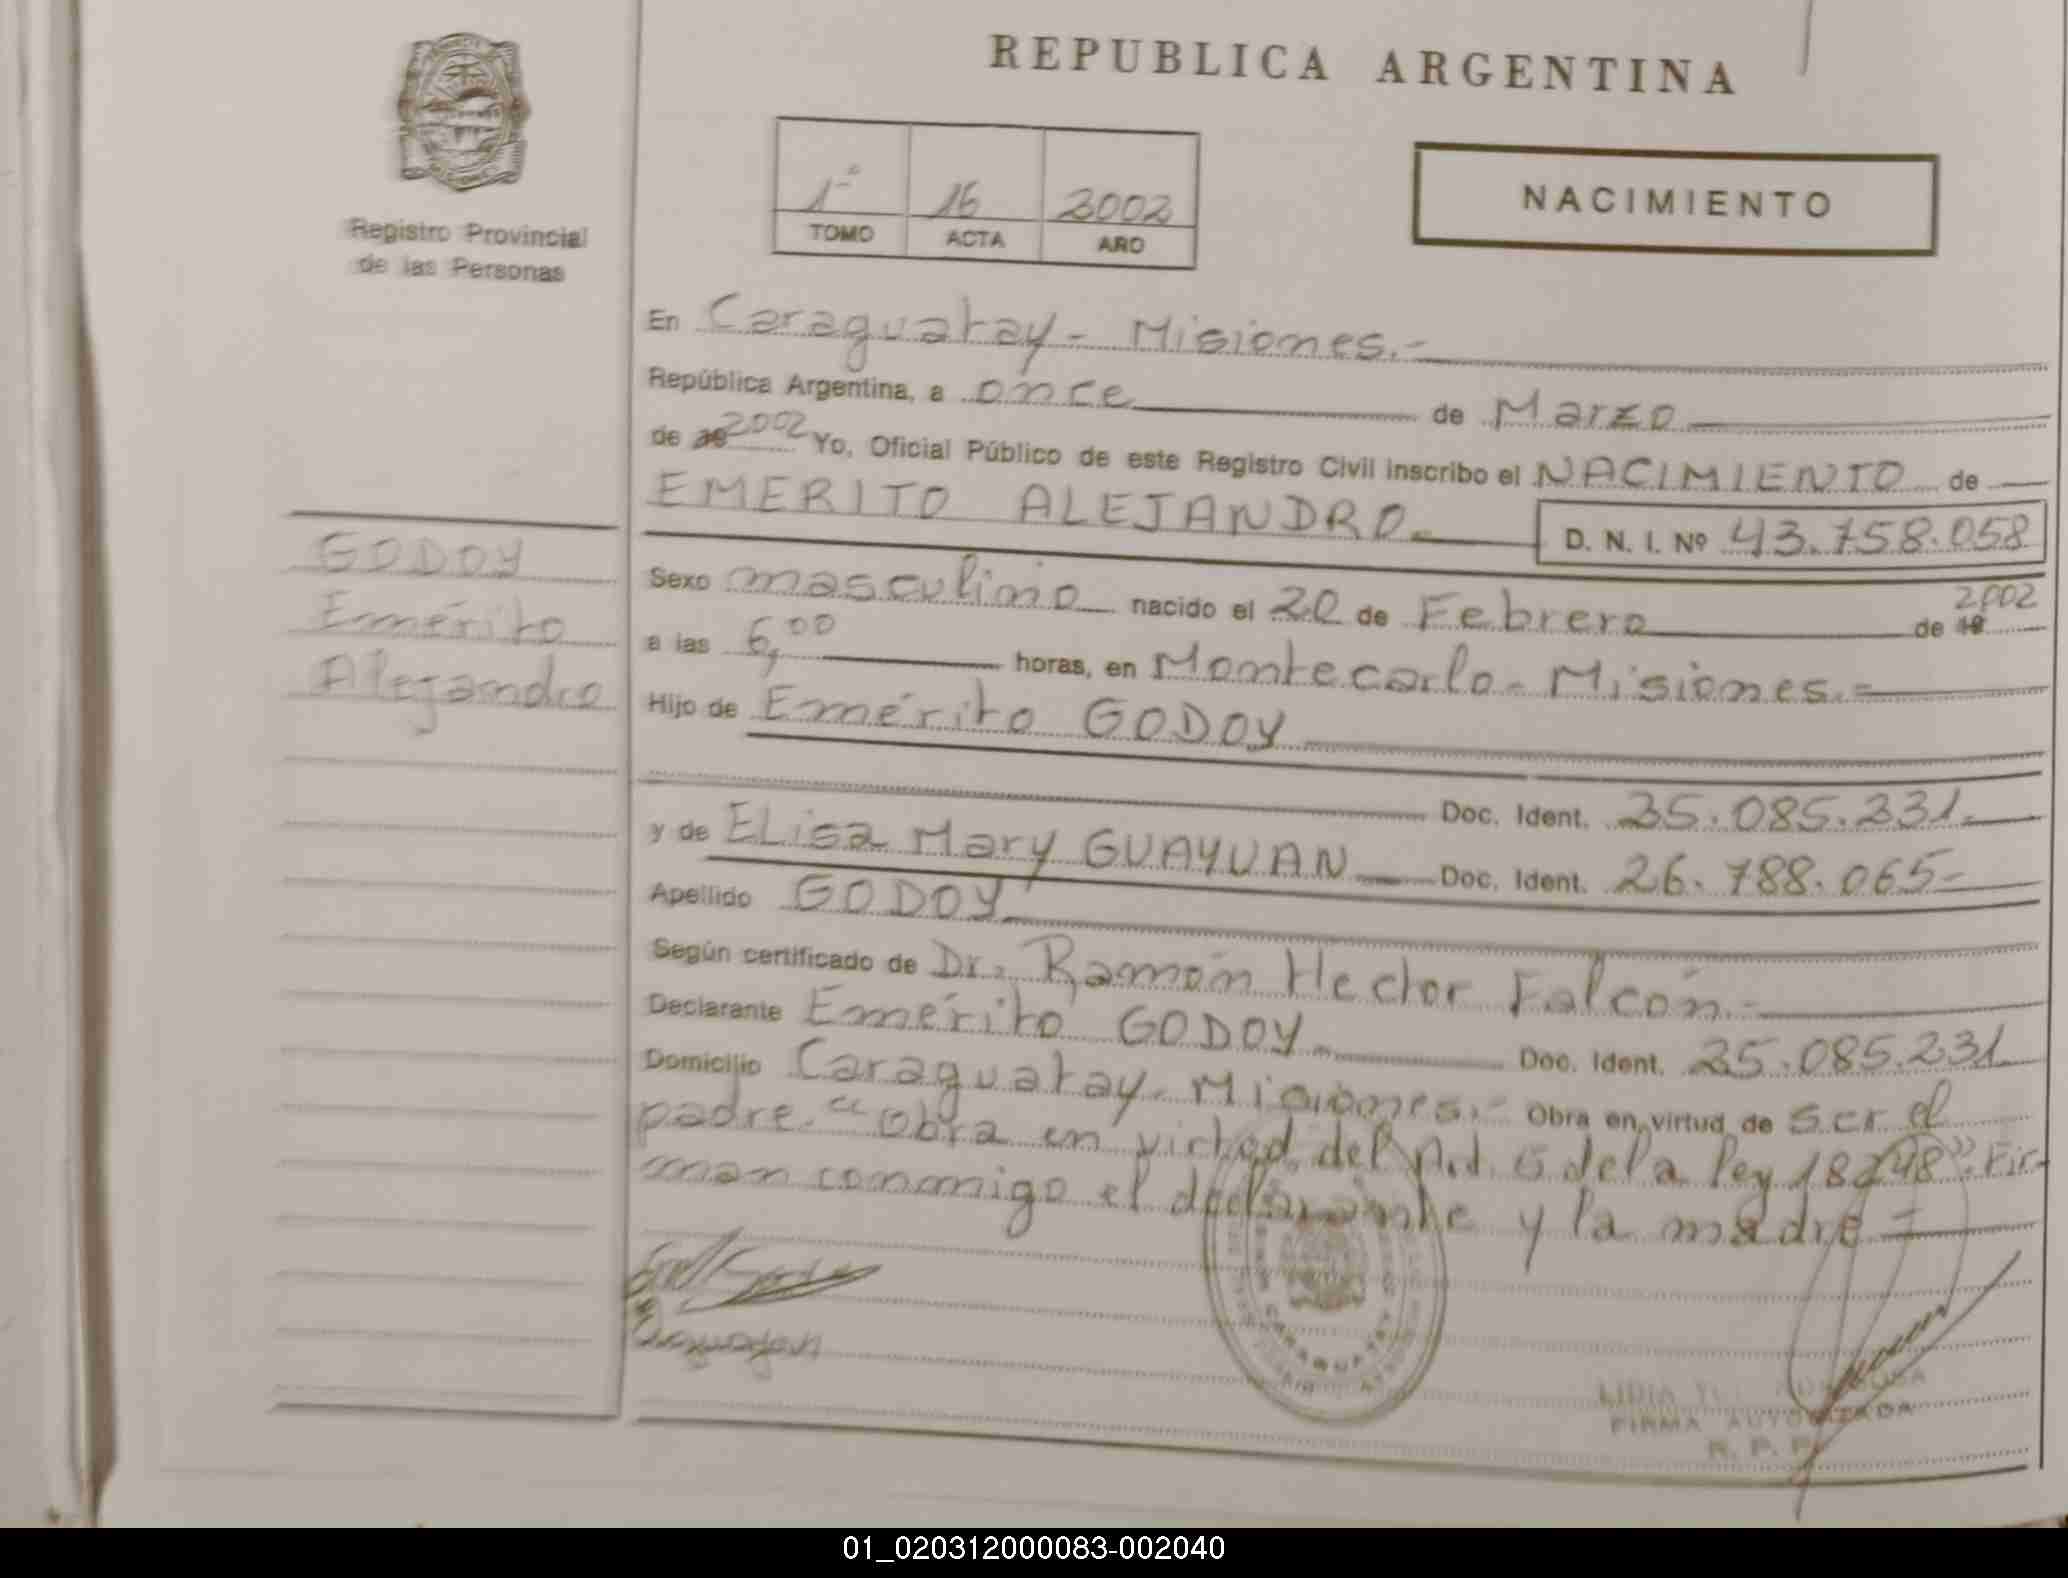 REPUBLICA ARGENTINA
Registro Provincial
de las Personas
1º 16 2002
TOMO ACTA AÑO
NACIMIENTO
En Caraguatay - Misiones.-
República Argentina, a once de Marzo
de 2002 Yo, Oficial Público de este Registro Civil inscribo el NACIMIENTO de
EMERITO ALEJANDRO D. N. I. Nº 43.758.058
GODOY
Emérito
Alejandro
Sexo masculino nacido el 20 de Febrero de 19 2002
a las 6,00 horas, en Montecarlo - Misiones.=
Hijo de Emérito GODOY
Doc. Ident. 25.085.231.
y de ELisa Mary GUAYUAN Doc. Ident. 26.788.065-
Apellido GODOY
Según certificado de Dr. Ramón Hector Falcón.-
Declarante Emérito GODOY Doc. Ident. 25.085.231
Domicilio Caraguatay - Misiones.- Obra en virtud de ser el
padre. "Obra en virtud del Art. 5 de la ley 18248". Fir-
man conmigo el declarante y la madre =
CARAGUATAY
LIDIA
FIRMA AUTORIZADA
R. P. P.
01_020312000083-002040